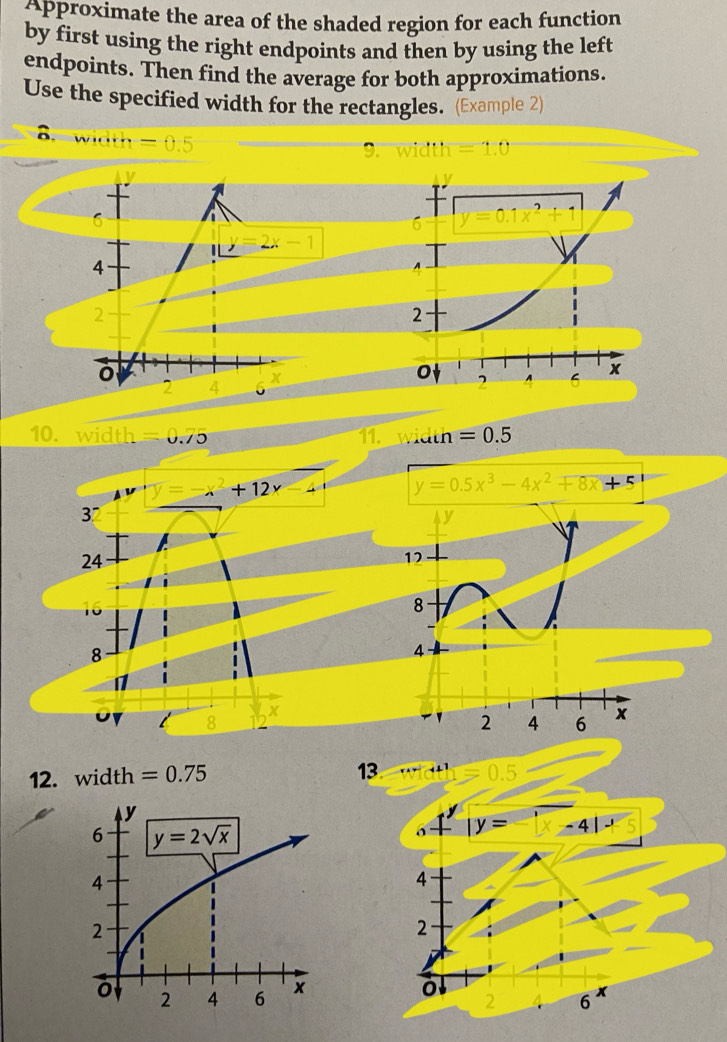 Approximate the area of the shaded region for each function
by first using the right endpoints and then by using the left
endpoints. Then find the average for both approximations.
Use the specified width for the rectangles. (Example 2)
8. width = 0.5
9. width = 1.0
y
6
4
2
O
2 4 6 x
y = 2x − 1
y
6
4
2
O
2 4 6 x
y = 0.1x² + 1
10. width = 0.75
11. width = 0.5
y = −x² + 12x − 4
y
32
24
16
8
O
4 8 12 x
y = 0.5x³ − 4x² + 8x + 5
y
12
8
4
2 4 6 x
12. width = 0.75
13. width = 0.5
y
6
4
2
O
2 4 6 x
y = 2√x
y
6
4
2
O
2 4 6 x
y = −|x − 4| + 5